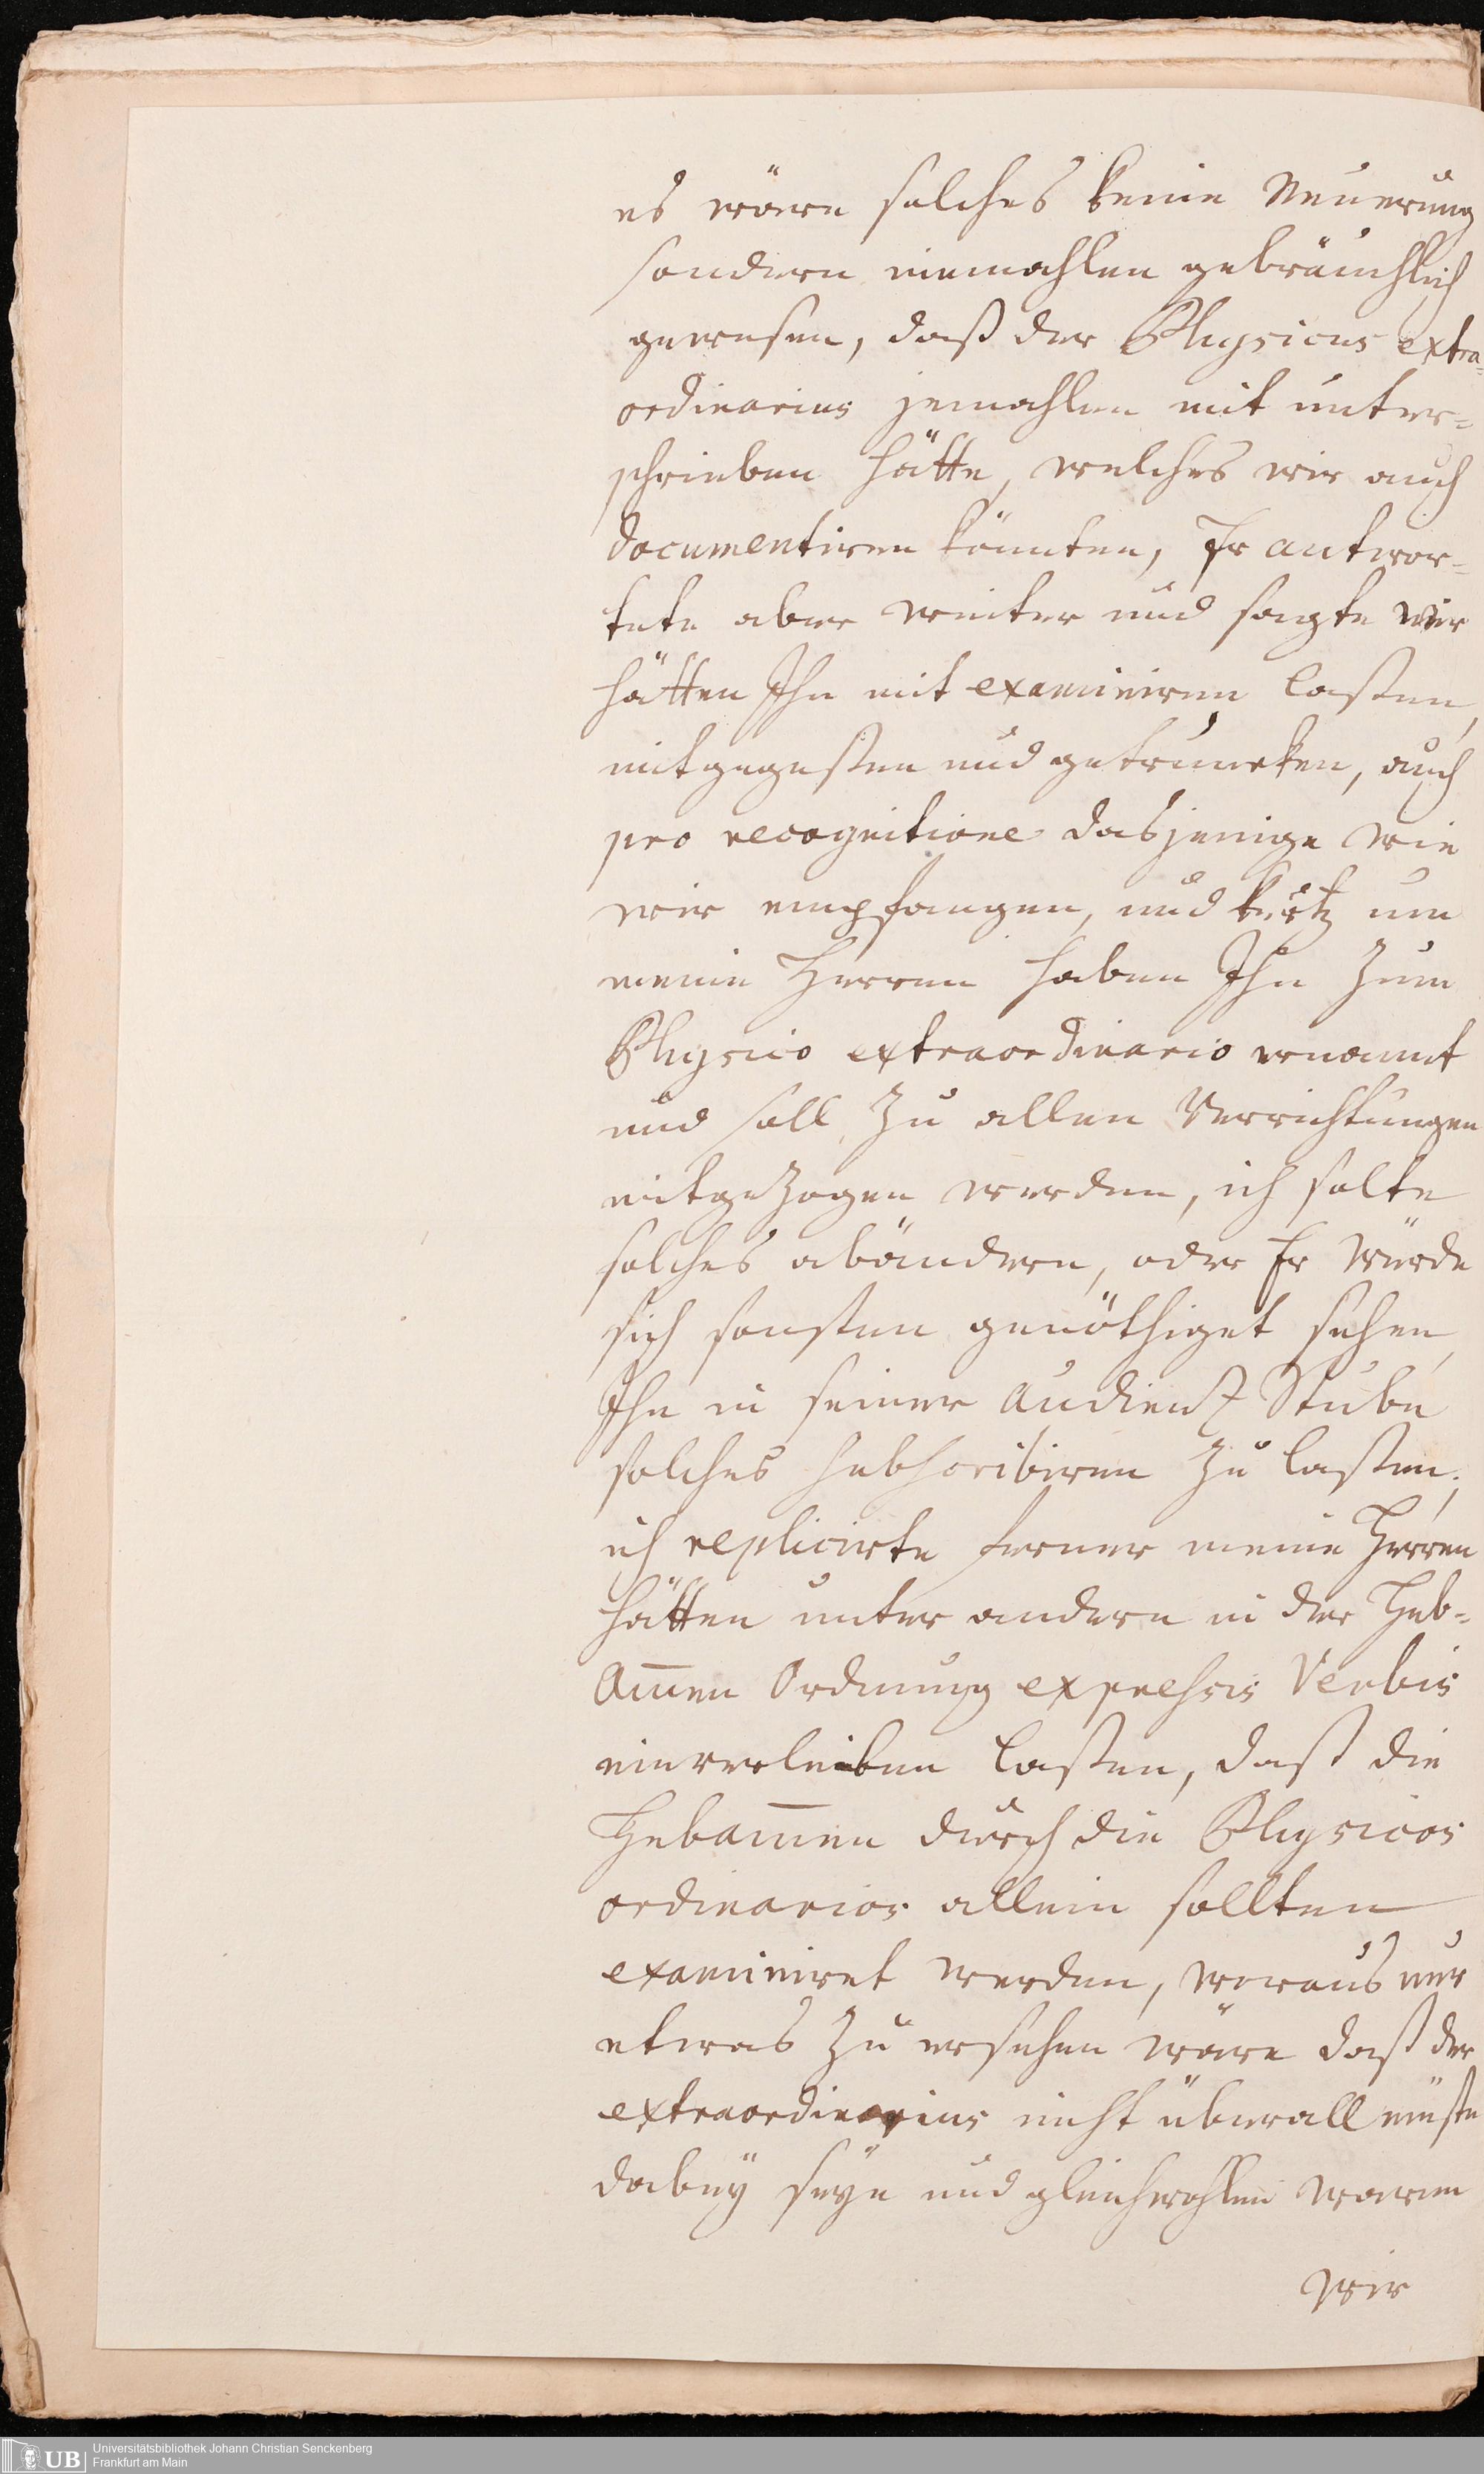 es wäre solches keine Neuerung
sondern niemahlen gebräuchlich
gewesen, daß der Physicus extra-
ordinarius jemahlen mit unter-
schrieben hätte, welches wir auch
documentiren könnten, Er antwor-
tete aber weiter und sagte wir
hätten Ihn mit examiniren laßen,
mitgegeßen und getruncken, auch
pro recognitione dasjenige wie
wir empfangen, und kurtz um
meine Herren haben Ihn zum
Physico extraordinario ernannt
und soll zu allen Verrichtungen
mitgezogen werden, ich solte
solches abändern, oder Er würde
sich sonsten genöthiget sehen,
Ihn in seiner Audientz Stube
solches subscribiren zu laßen.
ich replicirte ferner meine Herren
hätten unter andern in der Heb-
Am̄en Ordnung expressis Verbis
einverleiben laßen, daß die
Hebam̄en durch die Physicos
ordinarios allein sollten
examiniret werden, woraus nur
etwas zu ersehen wäre daß der
extraordinarius nicht überall müste
dabeÿ seÿn und gleichwohlen waren
wir
UB
Universitätsbibliothek Johann Christian Senckenberg
Frankfurt am Main